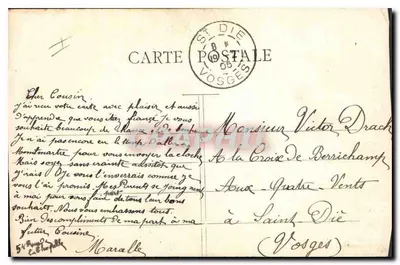 CARTE POSTALE
ST DIE
VOSGES
Cher Cousin
J'ai reçu votre carte avec plaisir et aussi
d'apprendre que vous êtes je vous
souhaite beaucoup de
Je n'ai pas encore eu le temps d'aller à
Montmartre pour vous envoyer la cloche
Mais soyez sans crainte aussitôt que
j'irais Je vous l'enverrais comme je
vous l'ai promis Mes Parents se joignent
à moi pour vous faire part de tous leur bons
souhaits. Nous vous embrassons tous
Bien des compliments de ma part à ma
future Cousine
Monsieur Victor Drach
A la Croix de Berrichamp
Aux-Quatre-Vents
à Saint-Dié
(Vosges)